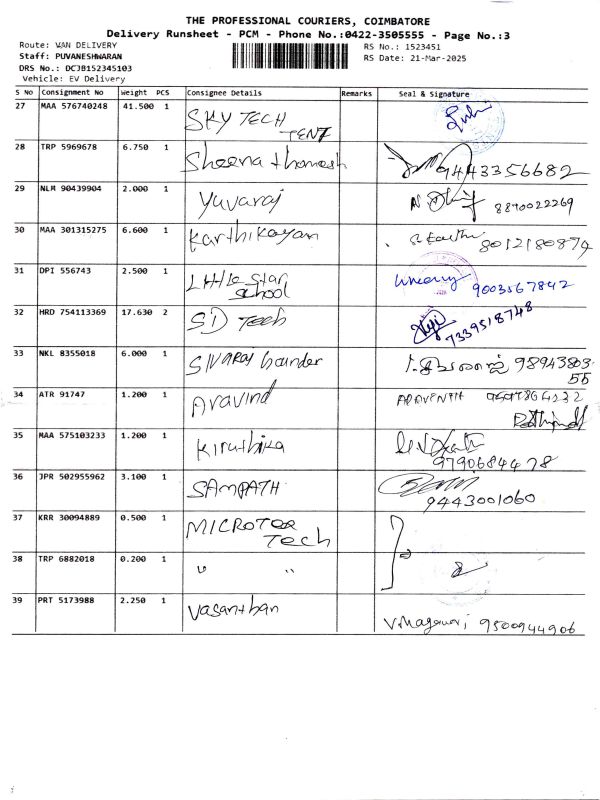 THE PROFESSIONAL COURIERS, COIMBATORE
Delivery Runsheet - PCM - Phone No.:0422-3505555 - Page No.:3
Route: VAN DELIVERY
RS No.: 1523451
Staff: PUVANESHWARAN
RS Date: 21-Mar-2025
DRS No.: DCJB152345103
Vehicle: EV Delivery
S No Consignment No Weight PCS Consignee Details Remarks Seal & Signature
27 MAA 576740248 41.500 1 SKY TECH
TENT
28 TRP 5969678 6.750 1 Sheena thomash 9443356682
29 NLM 90439904 2.000 1 Yuvaraj 8890022269
30 MAA 301315275 6.600 1 Karthikayan 8012180874
31 DPI 556743 2.500 1 Little Star
school 9003567842
32 HRD 754113369 17.630 2 SD Tech 7339518748
33 NKL 8355018 6.000 1 Sivaraj Gounder 98943803
55
34 ATR 91747 1.200 1 Aravind ARAVINTH
35 MAA 575103233 1.200 1 Kiruthika
9790684478
36 JPR 502955962 3.100 1 SAMPATH
9443001060
37 KRR 30094889 0.500 1 MICROTER
Tech
38 TRP 6882018 0.200 1 " "
39 PRT 5173988 2.250 1 Vasanthan
9500944906